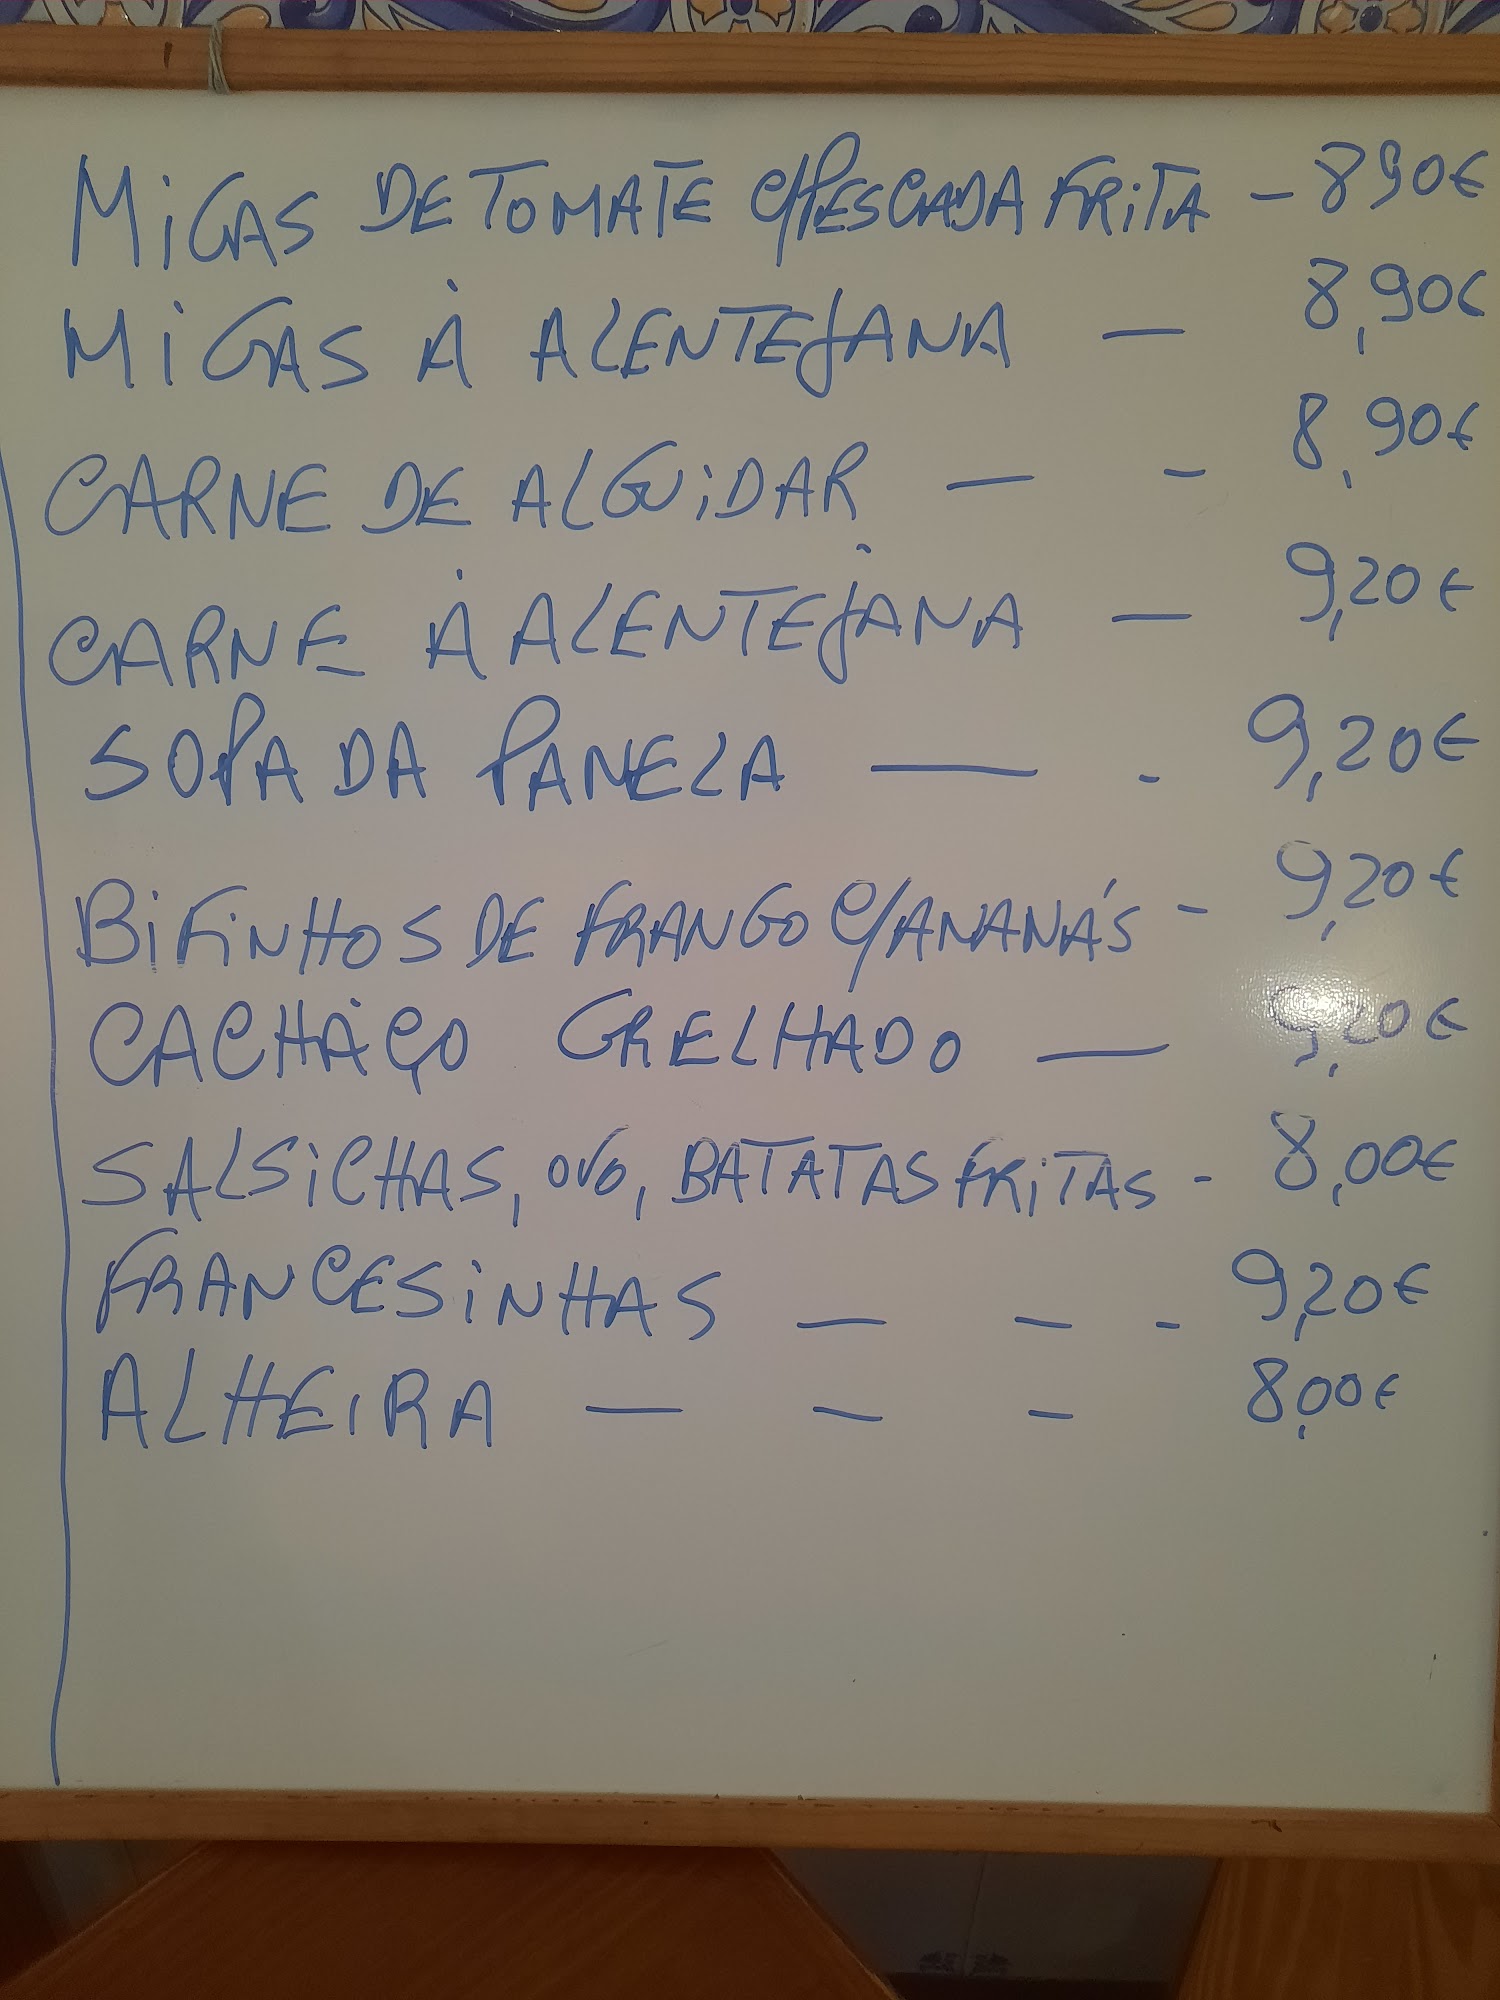 MIGAS DE TOMATE C/PESCADA FRITA - 8,90€
MIGAS À ALENTEJANA — 8,90€
CARNE DE ALGUIDAR — - 8,90€
CARNE À ALENTEJANA — 9,20€
SOPA DA PANELA — - 9,20€
BIFINHOS DE FRANGO C/ANANÁS - 9,20€
CACHAÇO GRELHADO — 9,20€
SALSICHAS, OVO, BATATAS FRITAS - 8,00€
FRANCESINHAS — — - 9,20€
ALHEIRA — — - 8,00€